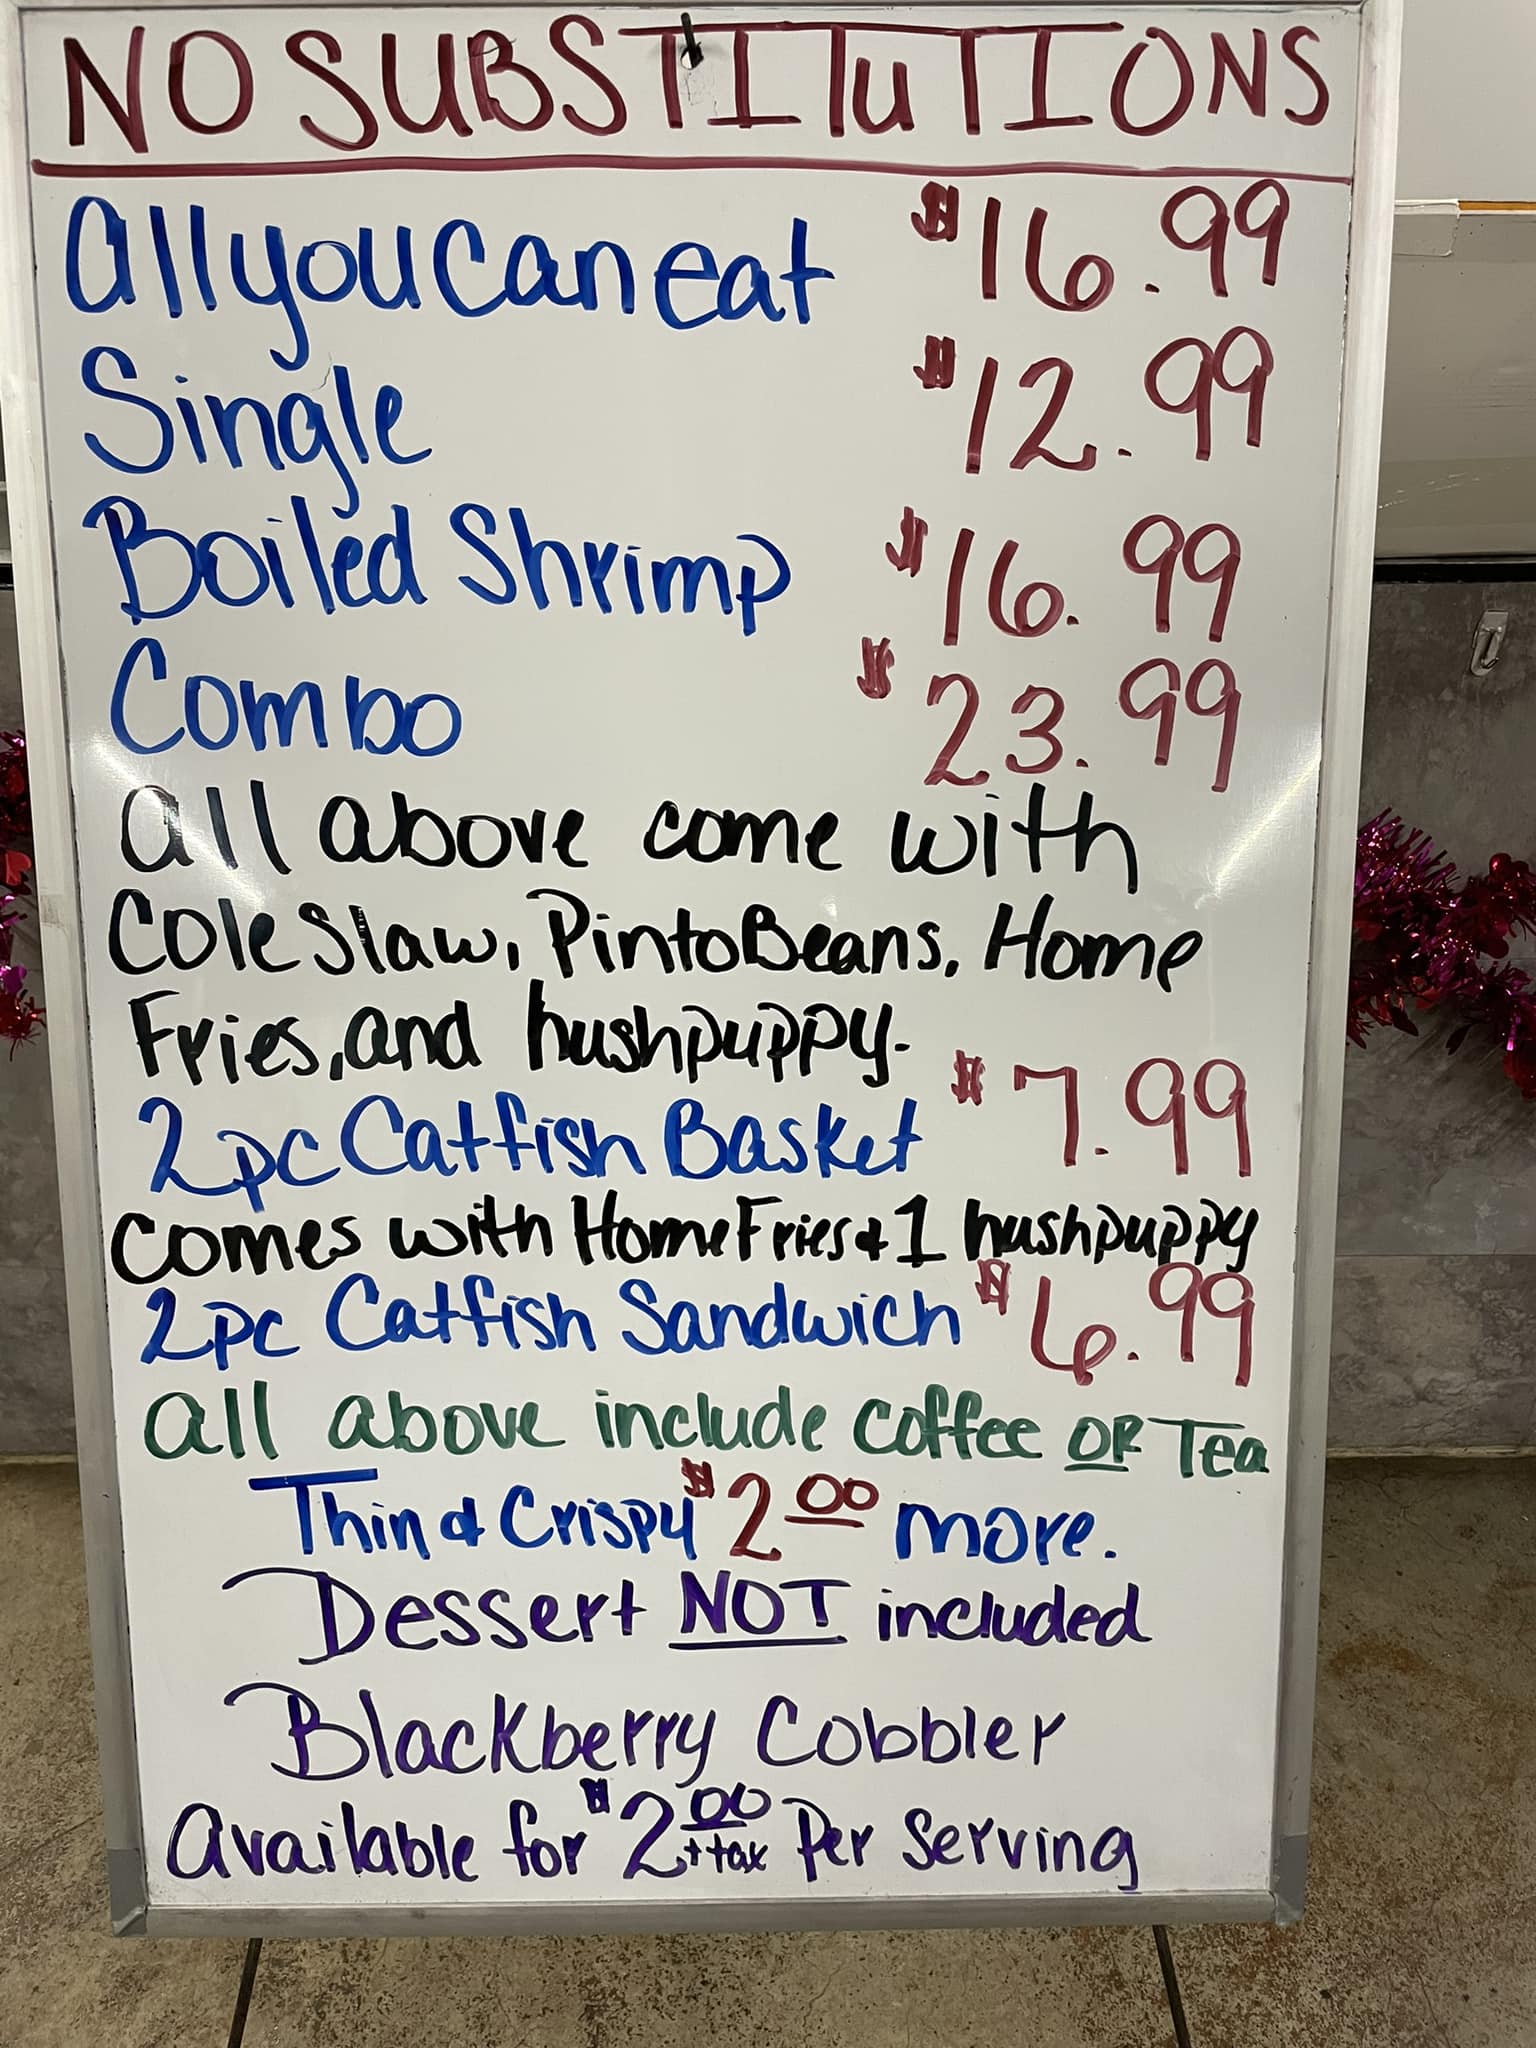 NO SUBSTITUTIONS
All you can eat $16.99
Single $12.99
Boiled Shrimp $16.99
Combo $23.99
All above come with
Cole Slaw, Pinto Beans, Home
Fries, and hushpuppy.
2pc Catfish Basket $7.99
comes with Home Fries & 1 hushpuppy
2pc Catfish Sandwich $6.99
All above include Coffee OR Tea
Thin & Crispy $2.00 more.
Dessert NOT included
Blackberry Cobbler
Available for $2.00 + tax Per Serving